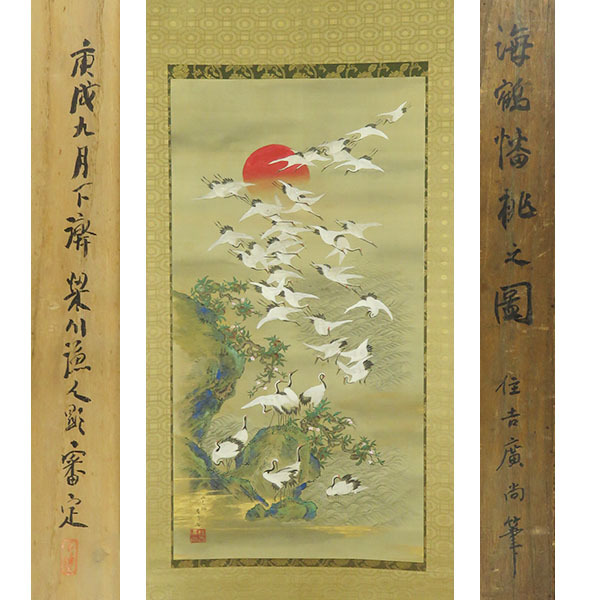 海鶴幡桃之圖
住吉廣尚筆
庚戌九月下澣 榮川漁人顕審定